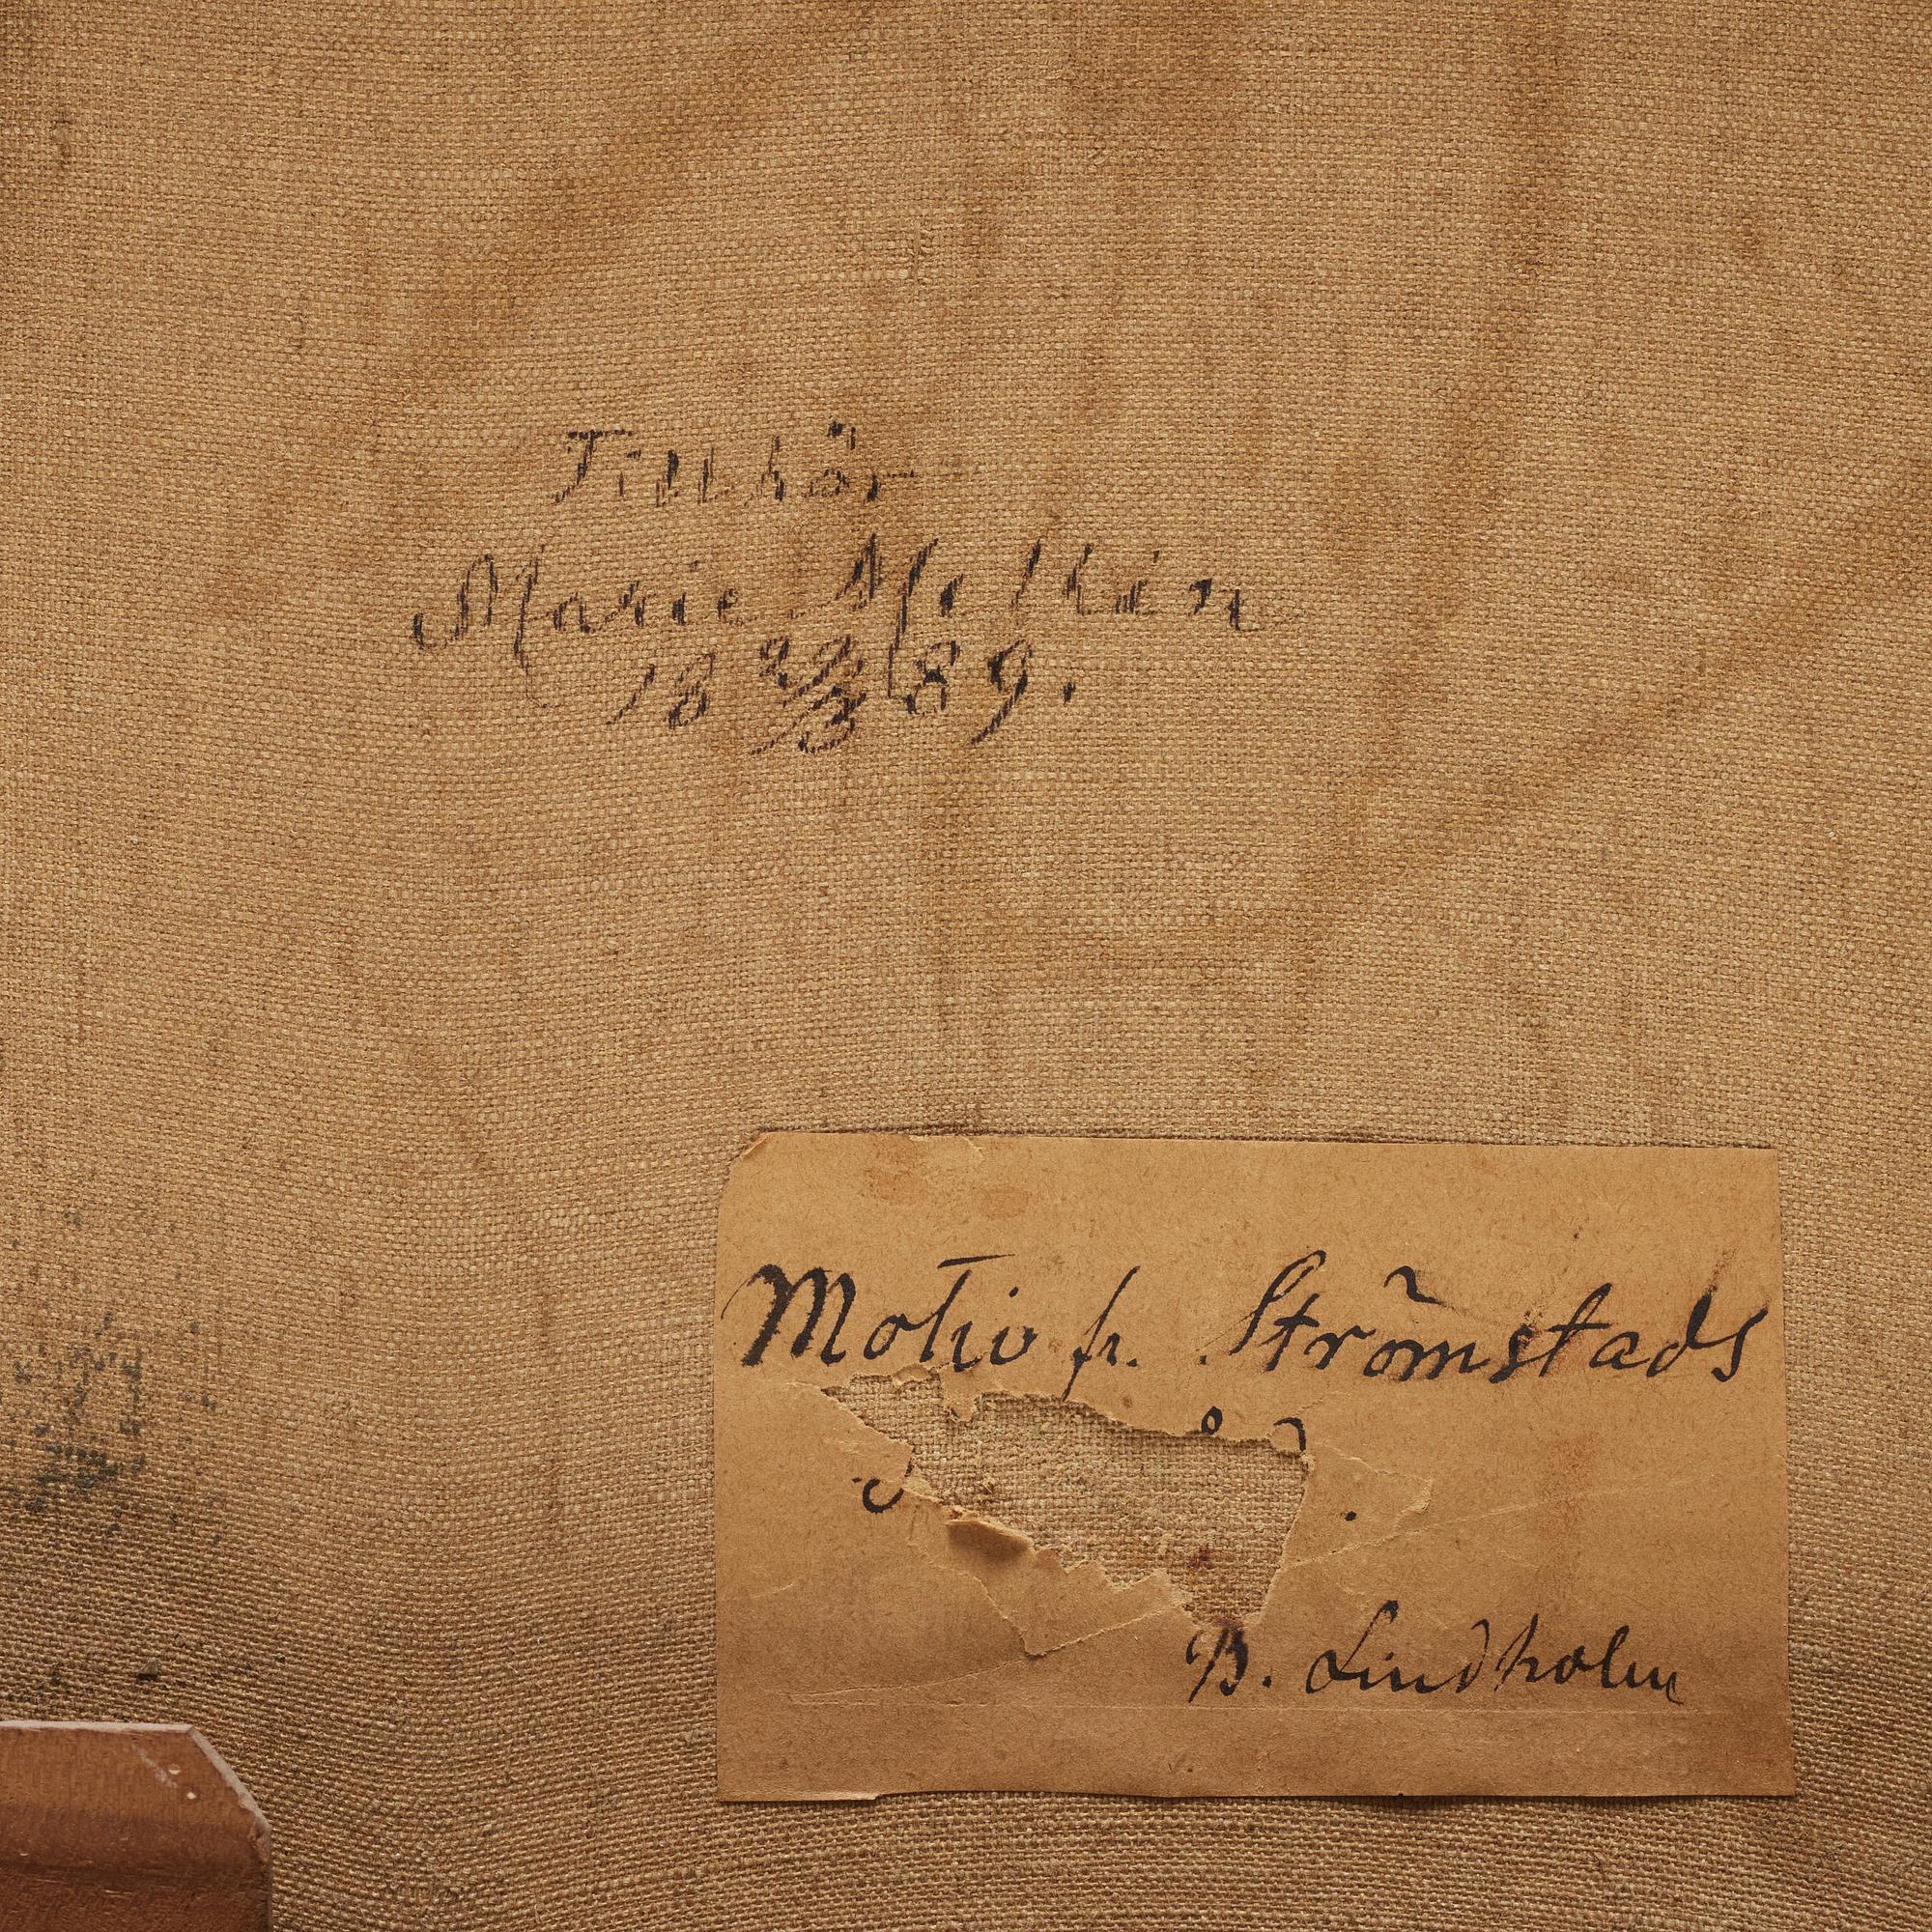 Tillhör
Marie Mellin
18 22/3 89.
Motiv fr. Strömstads
B. Lindholm